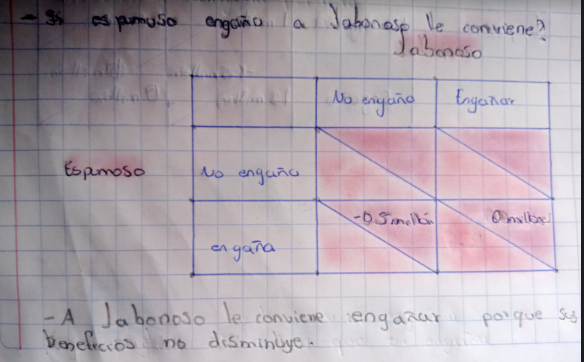 - Si espumoso engaña a Jabonoso le conviene?
Jabonoso
No engaña Engañar
Espumoso No engaña
engaña -0.5 millón 0 millones
- A Jabonoso le conviene engañar porque sus
beneficios no disminuye.